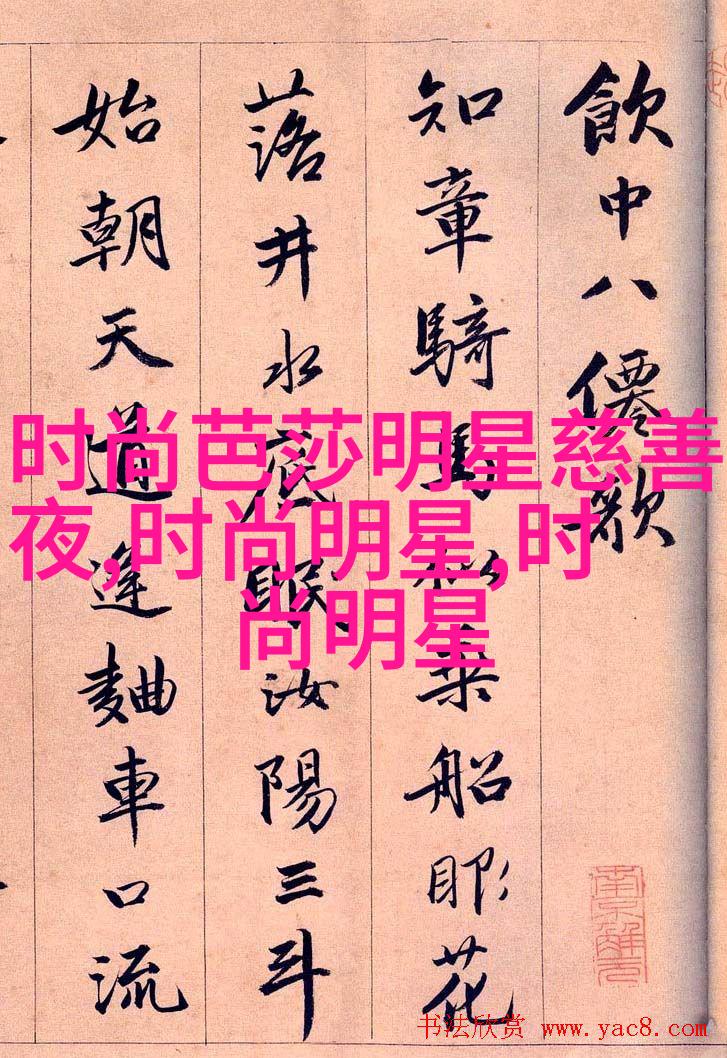 飲中八僊歌
知章騎馬似乘船眼花
落井水底眠汝陽三斗
始朝天道逢麯車口流
时尚芭莎明星慈善
夜,时尚明星,时
尚明星
南京解元
书法欣赏 www.yac8.com